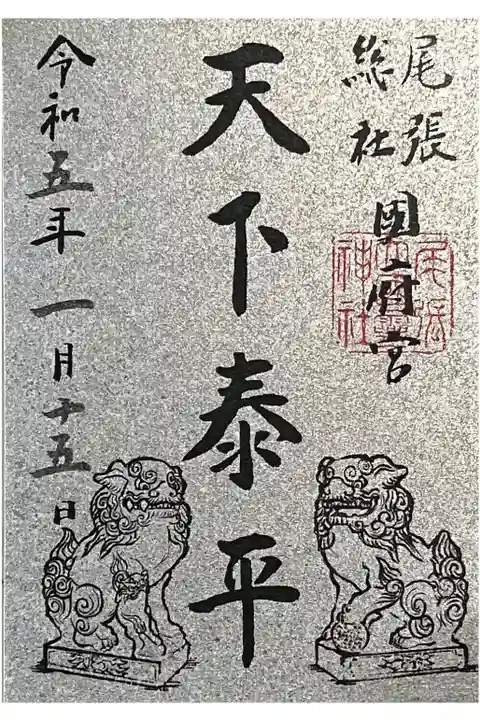 尾張
総社
國府宮
天下泰平
令和五年一月十五日